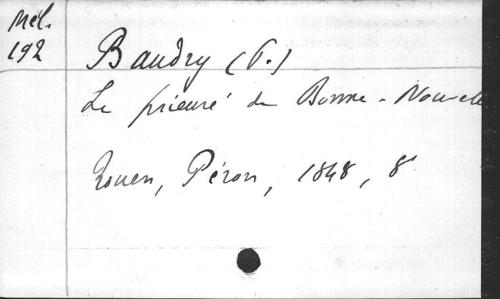 Mél.
192
Baudry (P.)
Le prieuré de Bonne-Nouvelle
Rouen, Péron, 1848, 8°